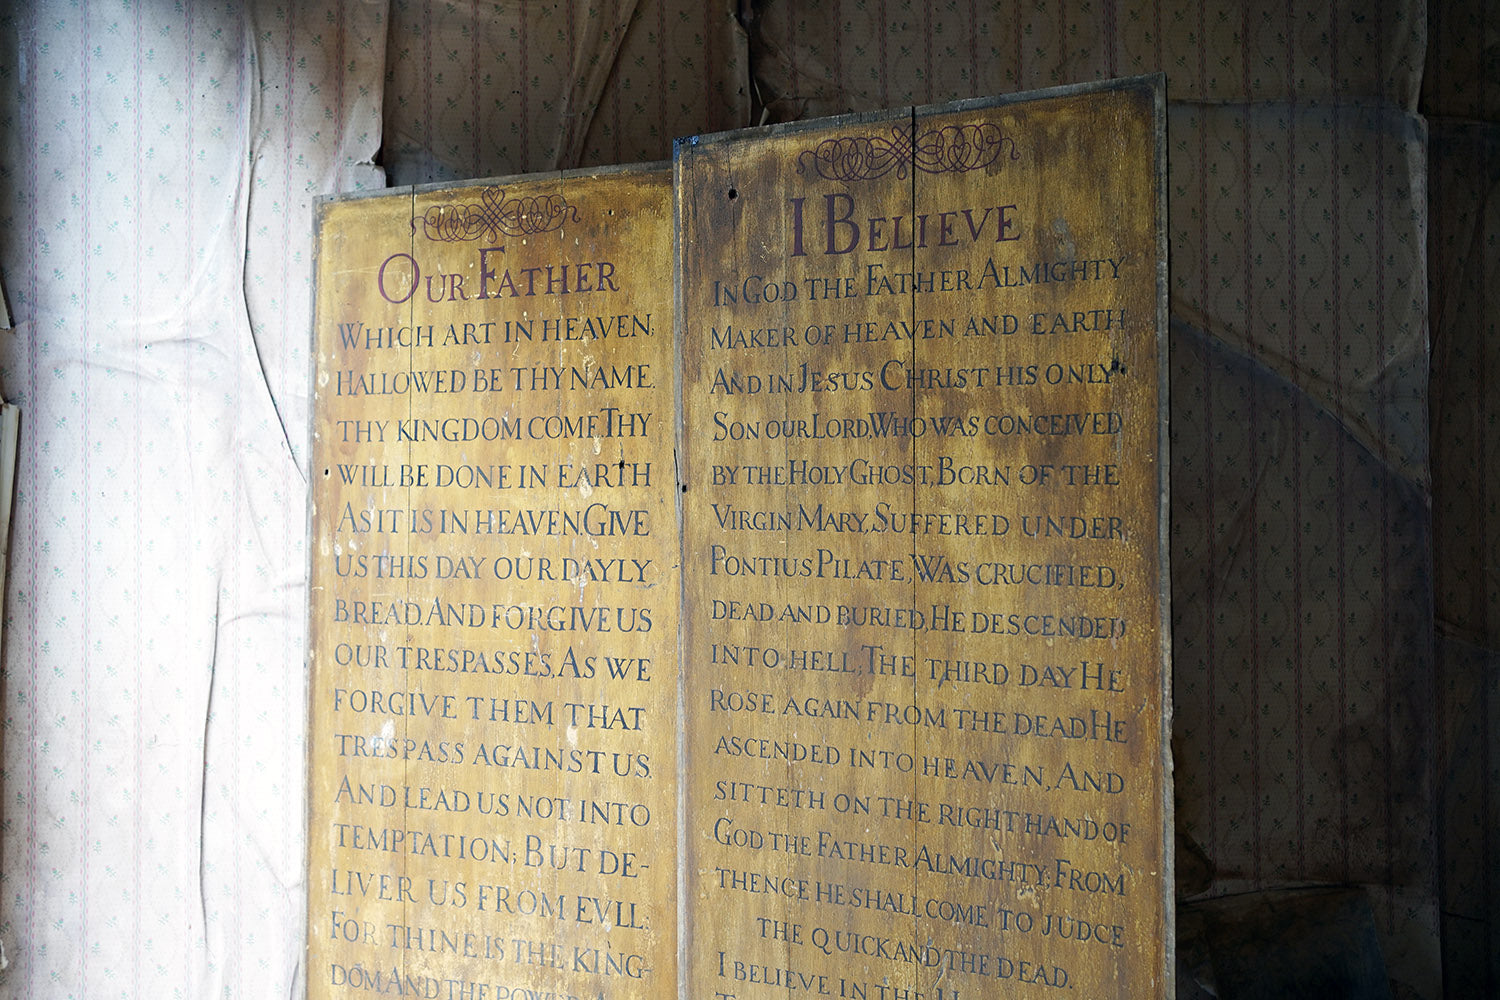 OUR FATHER
WHICH ART IN HEAVEN;
HALLOWED BE THY NAME.
THY KINGDOM COME. THY
WILL BE DONE IN EARTH
AS IT IS IN HEAVEN. GIVE
US THIS DAY OUR DAYLY
BREAD. AND FORGIVE US
OUR TRESPASSES, AS WE
FORGIVE THEM THAT
TRESPASS AGAINST US.
AND LEAD US NOT INTO
TEMPTATION; BUT DE-
LIVER US FROM EVLL:
FOR THINE IS THE KING-
DOM AND THE POWER
I BELIEVE
IN GOD THE FATHER ALMIGHTY
MAKER OF HEAVEN AND EARTH
AND IN JESUS CHRIST HIS ONLY
SON OUR LORD, WHO WAS CONCEIVED
BY THE HOLY GHOST, BORN OF THE
VIRGIN MARY, SUFFERED UNDER
PONTIUS PILATE, WAS CRUCIFIED,
DEAD AND BURIED, HE DESCENDED
INTO HELL, THE THIRD DAY HE
ROSE AGAIN FROM THE DEAD. HE
ASCENDED INTO HEAVEN, AND
SITTETH ON THE RIGHT HAND OF
GOD THE FATHER ALMIGHTY; FROM
THENCE HE SHALL COME TO JUDGE
THE QUICK AND THE DEAD.
I BELIEVE IN THE